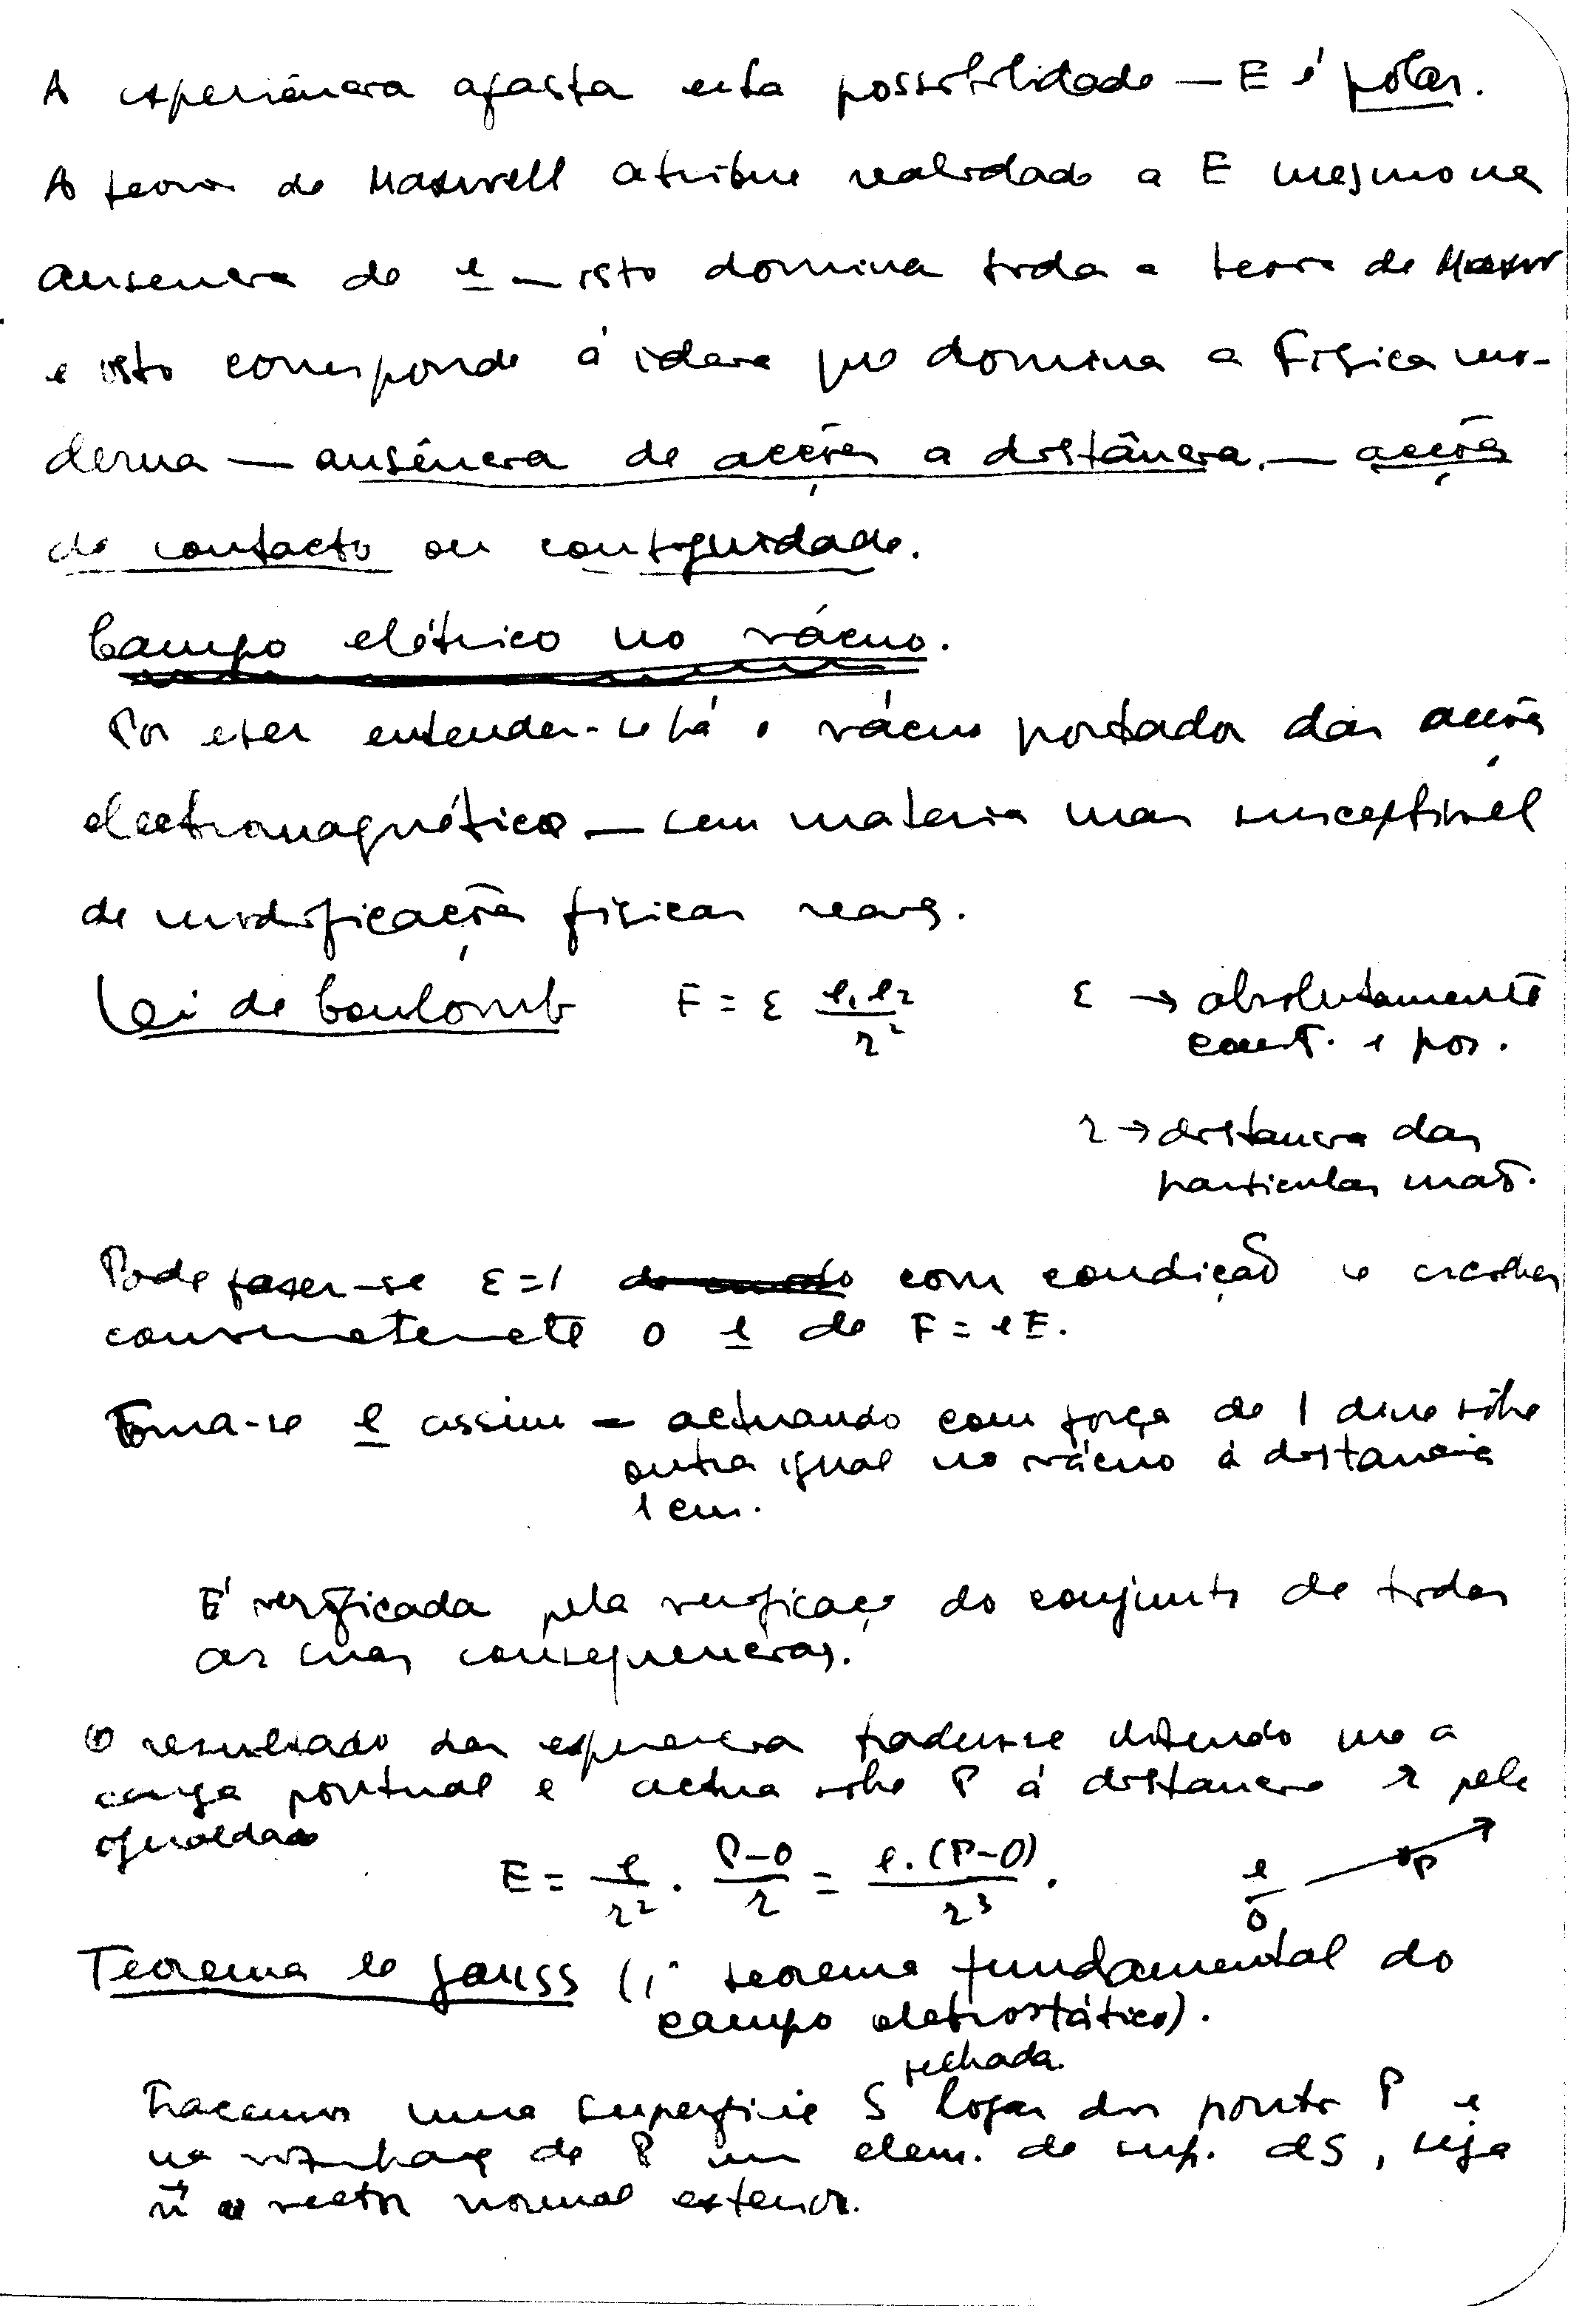 A experiência afasta esta possibilidade — E é polar.
A teoria de Maxwell atribue realidade a E mesmo na
ausencia de e — isto domina toda a teoria de Maxw
e isto corresponde á ideia que domina a Fisica mo-
derna — ausência de acções a distância. — acções
de contacto ou contiguidade.
Campo elétrico no vácuo.
Por eter entender-se há o vácuo portador das acções
electromagnéticas — sem materia mas susceptivel
de modificações fisicas reais.
Lei de Coulomb F = ε e₁e₂/r² ε → absolutamente
const. e pos.
r → distancia das
particulas mat.
Pode fazer-se ε=1 com condição se escolher
convenientemente o e de F = eE.
Toma-se e assim — actuando com força de 1 dine sôbre
outra igual no vácuo á distancia
1 cm.
É verificada pela verificação do conjunto de todas
as suas consequencias.
O resultado da experiencia traduz-se dizendo que a
carga pontual e actua sobre P á distancia r pela
igualdade
E = e/r² . P-O/r = e.(P-O)/r³ . e O P
Teorema de Gauss (1º teorema fundamental do
campo eletrostático).
fechada
Tracemos uma superficie S lugar dos pontos P e
na vizinhança de P um elem. de sup. dS, seja
n⃗ o vector normal exterior.